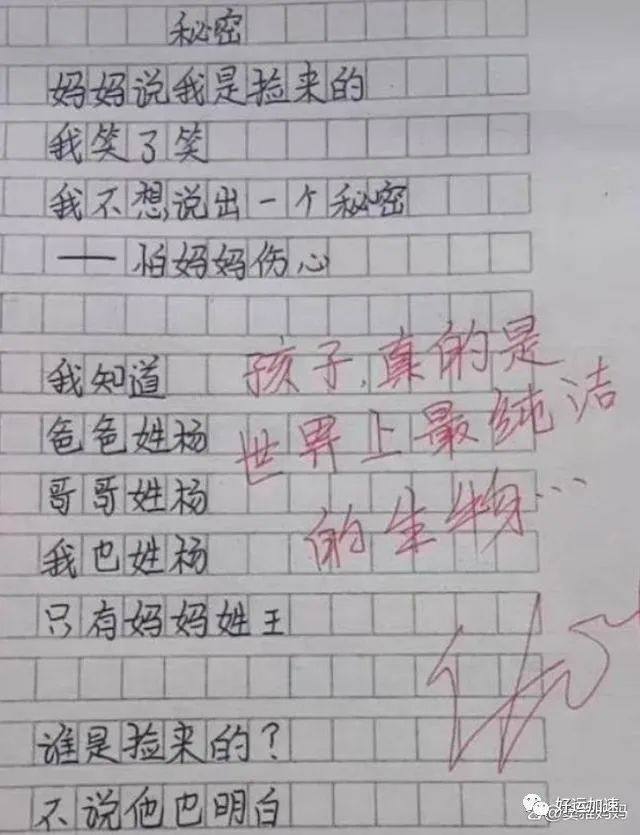 秘密
妈妈说我是捡来的
我笑了笑
我不想说出一个秘密
——怕妈妈伤心
我知道
爸爸姓杨
哥哥姓杨
我也姓杨
只有妈妈姓王
谁是捡来的？
不说他也明白
孩子,真的是
世界上最纯洁
的生物…
好运加速